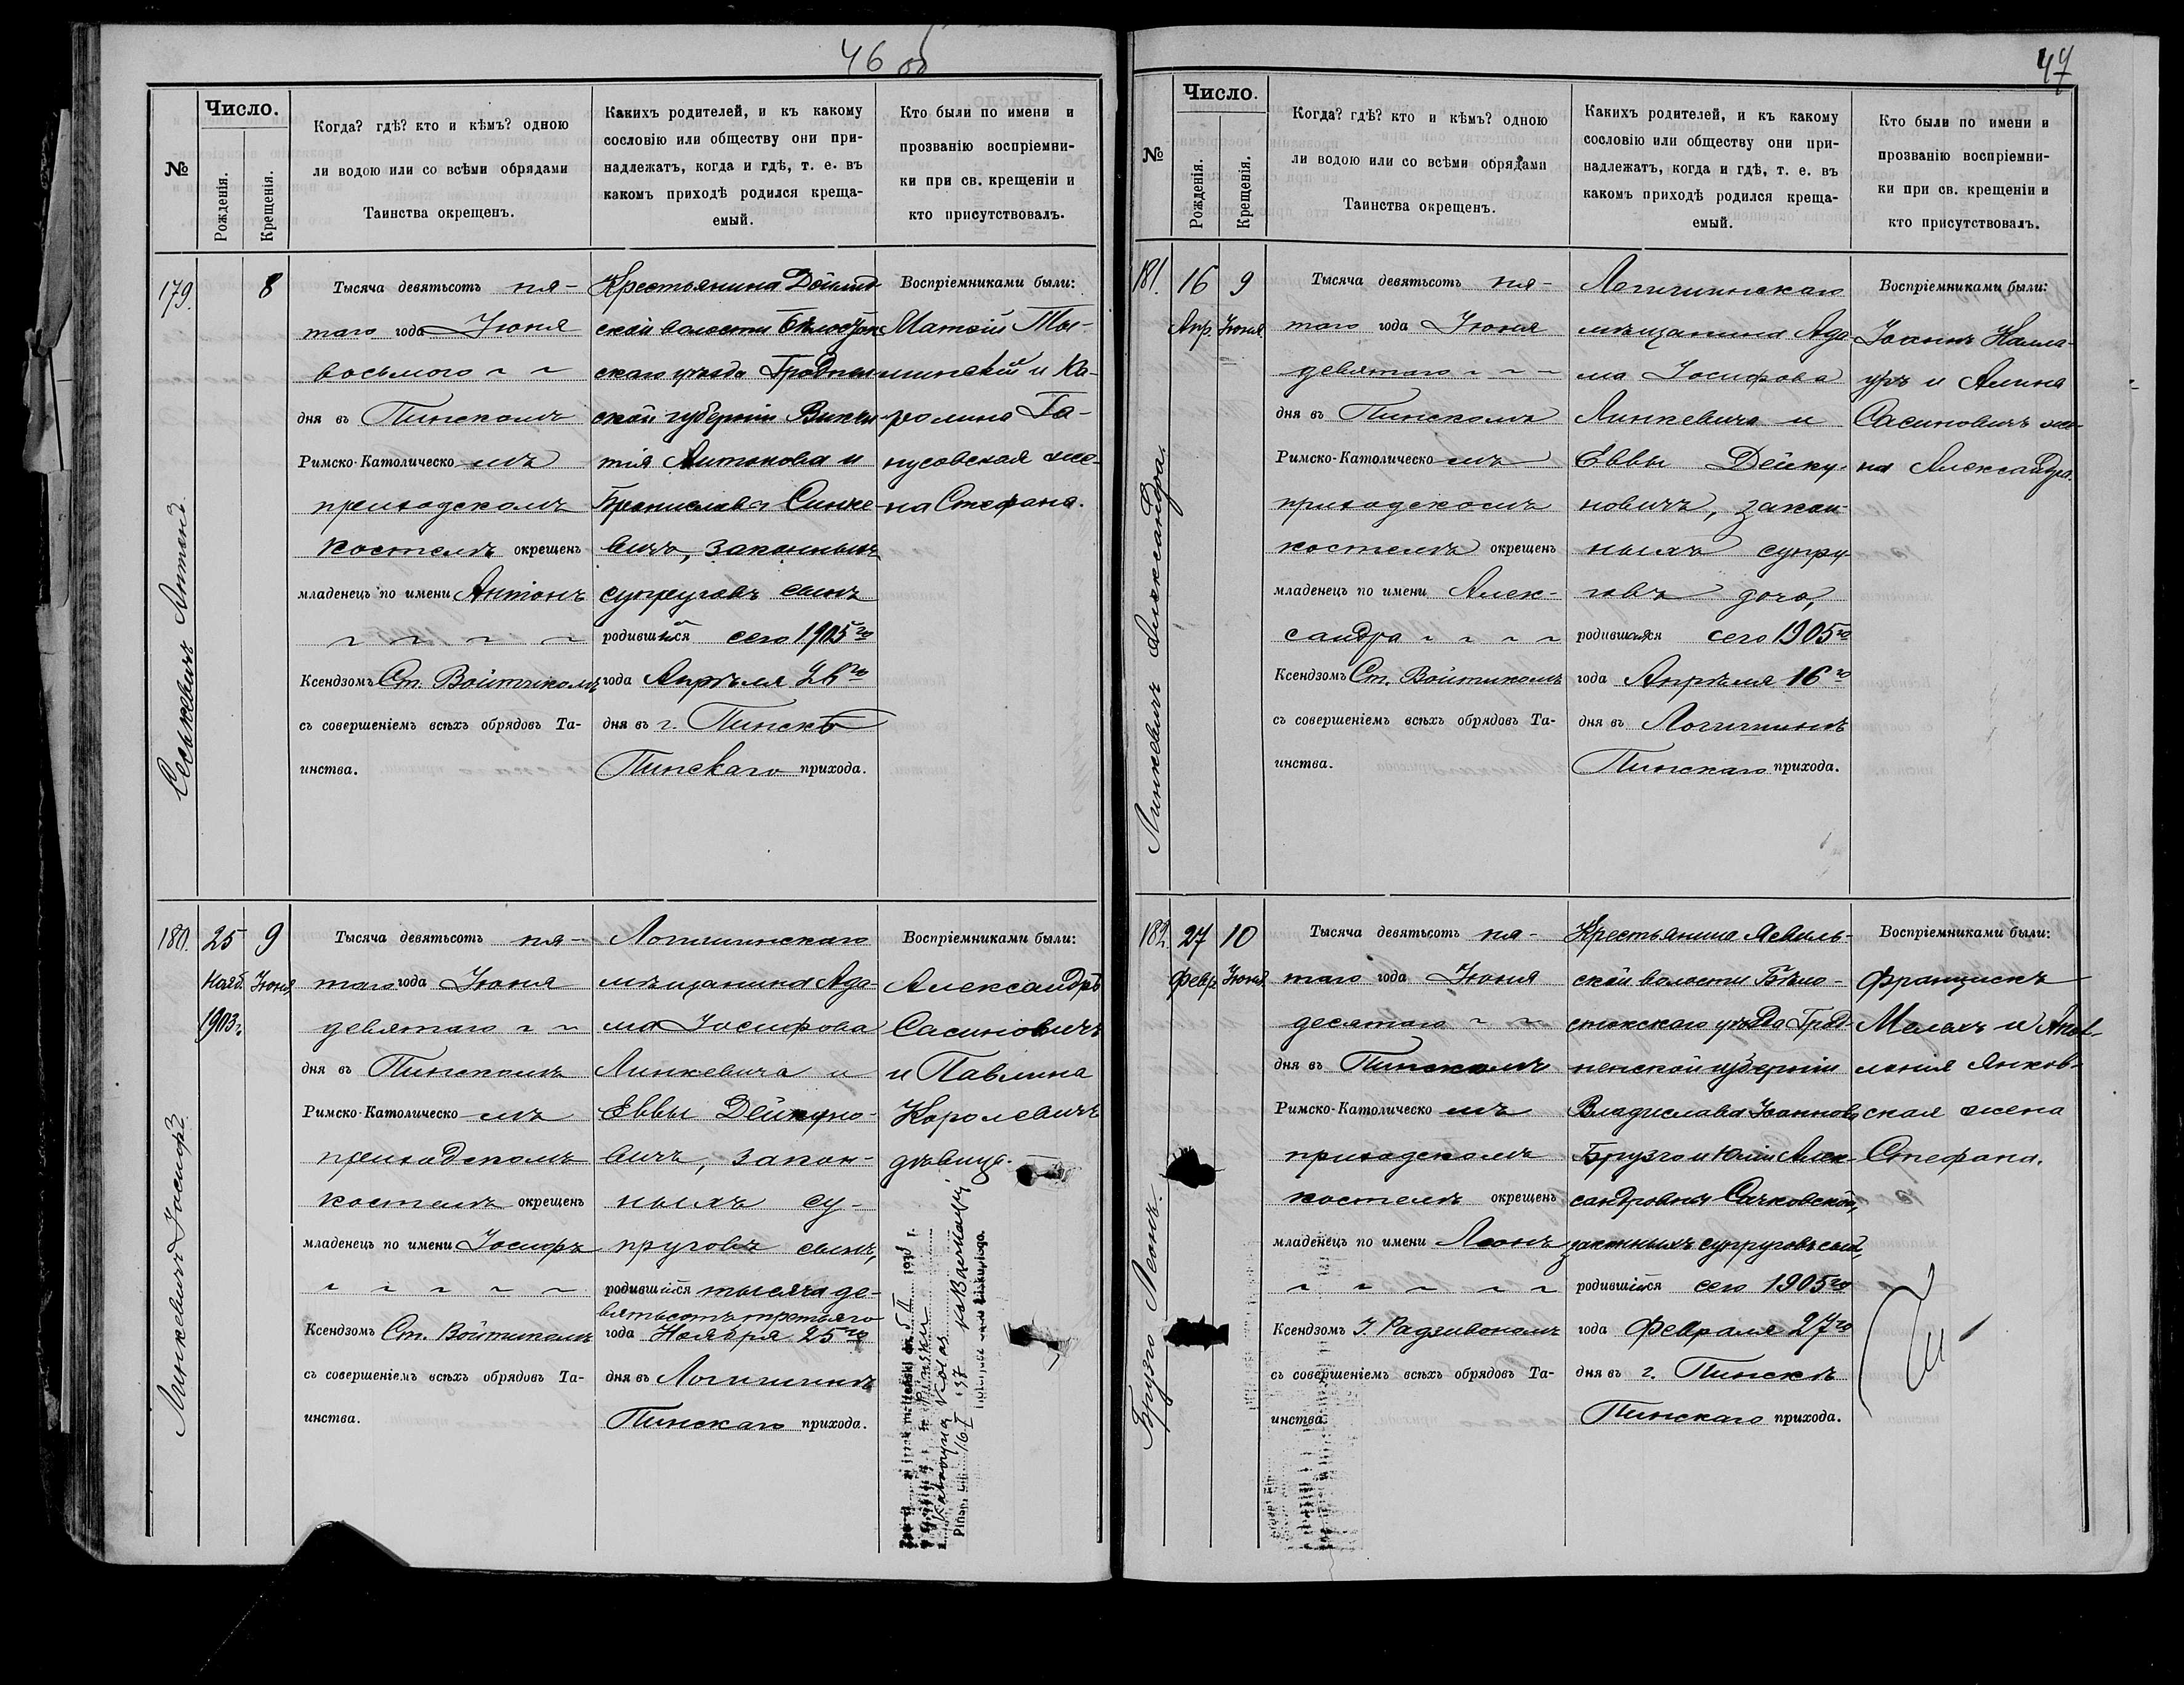 46 об
№
Число.
Рожденія.
Крещенія.
Когда? гдѣ? кто и кѣмъ? одною
ли водою или со всѣми обрядами
Таинства окрещенъ.
Какихъ родителей, и къ какому
сословію или обществу они при-
надлежатъ, когда и гдѣ, т. е. въ
какомъ приходѣ родился креща-
емый.
Кто были по имени и
прозванію воспріемни-
ки при св. крещеніи и
кто присутствовалъ.
179.
8
Антонъ
Тысяча девятьсотъ пя-
таго года Іюня
восьмого
дня въ Пинскомъ
Римско-Католическо мъ
приходскомъ
костелѣ окрещенъ
младенецъ по имени Антонъ
Ксендзомъ Ст. Войтикомъ
съ совершеніемъ всѣхъ обрядовъ Та-
инства.
Крестьянина
ской волости Бѣлосток
скаго уѣзда Гроднен
ской губерніи Викен
тія Антонова и
Брониславы
вичъ, законныхъ
супруговъ сынъ
родившійся сего 1905го
года Апрѣля 26го
дня въ г. Пинскѣ
Пинскаго прихода.
Воспріемниками были:
Матвій Ты-
минскій и Ка-
ролина Га-
нусовская же-
на Стефана.
180.
25
Нояб.
1903г.
9
Іюня
Линкевичъ Іосифъ.
Тысяча девятьсотъ пя-
таго года Іюня
девятаго
дня въ Пинскомъ
Римско-Католическо мъ
приходскомъ
костелѣ окрещенъ
младенецъ по имени Іосифъ
Ксендзомъ Ст. Войтикомъ
съ совершеніемъ всѣхъ обрядовъ Та-
инства.
Логишинскаго
мѣщанина Ада-
ма Іосифова
Линкевича и
Еввы Дейкуно-
вичъ, закон-
ныхъ су-
пруговъ сынъ,
родившійся тысяча де-
вятьсотъ третьяго
года Ноября 25го
дня въ Логишинѣ
Пинскаго прихода.
Воспріемниками были:
Александръ
Сасиновичъ
и Павлина
Королевичъ
дѣвица.
47
№
Число.
Рожденія.
Крещенія.
Когда? гдѣ? кто и кѣмъ? одною
ли водою или со всѣми обрядами
Таинства окрещенъ.
Какихъ родителей, и къ какому
сословію или обществу они при-
надлежатъ, когда и гдѣ, т. е. въ
какомъ приходѣ родился креща-
емый.
Кто были по имени и
прозванію воспріемни-
ки при св. крещеніи и
кто присутствовалъ.
181.
16
Апр.
9
Іюня.
Линкевичъ Александра.
Тысяча девятьсотъ пя-
таго года Іюня
девятаго
дня въ Пинскомъ
Римско-Католическо мъ
приходскомъ
костелѣ окрещенъ
младенецъ по имени Алек-
сандра
Ксендзомъ Ст. Войтикомъ
съ совершеніемъ всѣхъ обрядовъ Та-
инства.
Логишинскаго
мѣщанина Ада-
ма Іосифова
Линкевича и
Еввы Дейку-
новичъ, закон-
ныхъ супру-
говъ дочь,
родившаяся сего 1905го
года Апрѣля 16го
дня въ Логишинѣ
Пинскаго прихода.
Воспріемниками были:
Іоаннъ Калла-
уръ и Алина
Сасиновичъ же-
на Александра.
182.
27
Февр.
10
Іюня.
Брузго Леонъ.
Тысяча девятьсотъ пя-
таго года Іюня
десятаго
дня въ Пинскомъ
Римско-Католическо мъ
приходскомъ
костелѣ окрещенъ
младенецъ по имени Леонъ
Ксендзомъ І. Радзивономъ
съ совершеніемъ всѣхъ обрядовъ Та-
инства.
Крестьянина
ской волости Бѣло-
стокскаго уѣзда Грод-
ненской губерніи
Владислава Іоаннова
Брузго и Юліи Алек-
сандровны Сачковской,
законныхъ супруговъ сынъ,
родившійся сего 1905го
года Февраля 27го
дня въ г. Пинскѣ
Пинскаго прихода.
Воспріемниками были:
Францискъ
Мелехъ и Апол-
лонія Янков-
ская жена
Стефана.